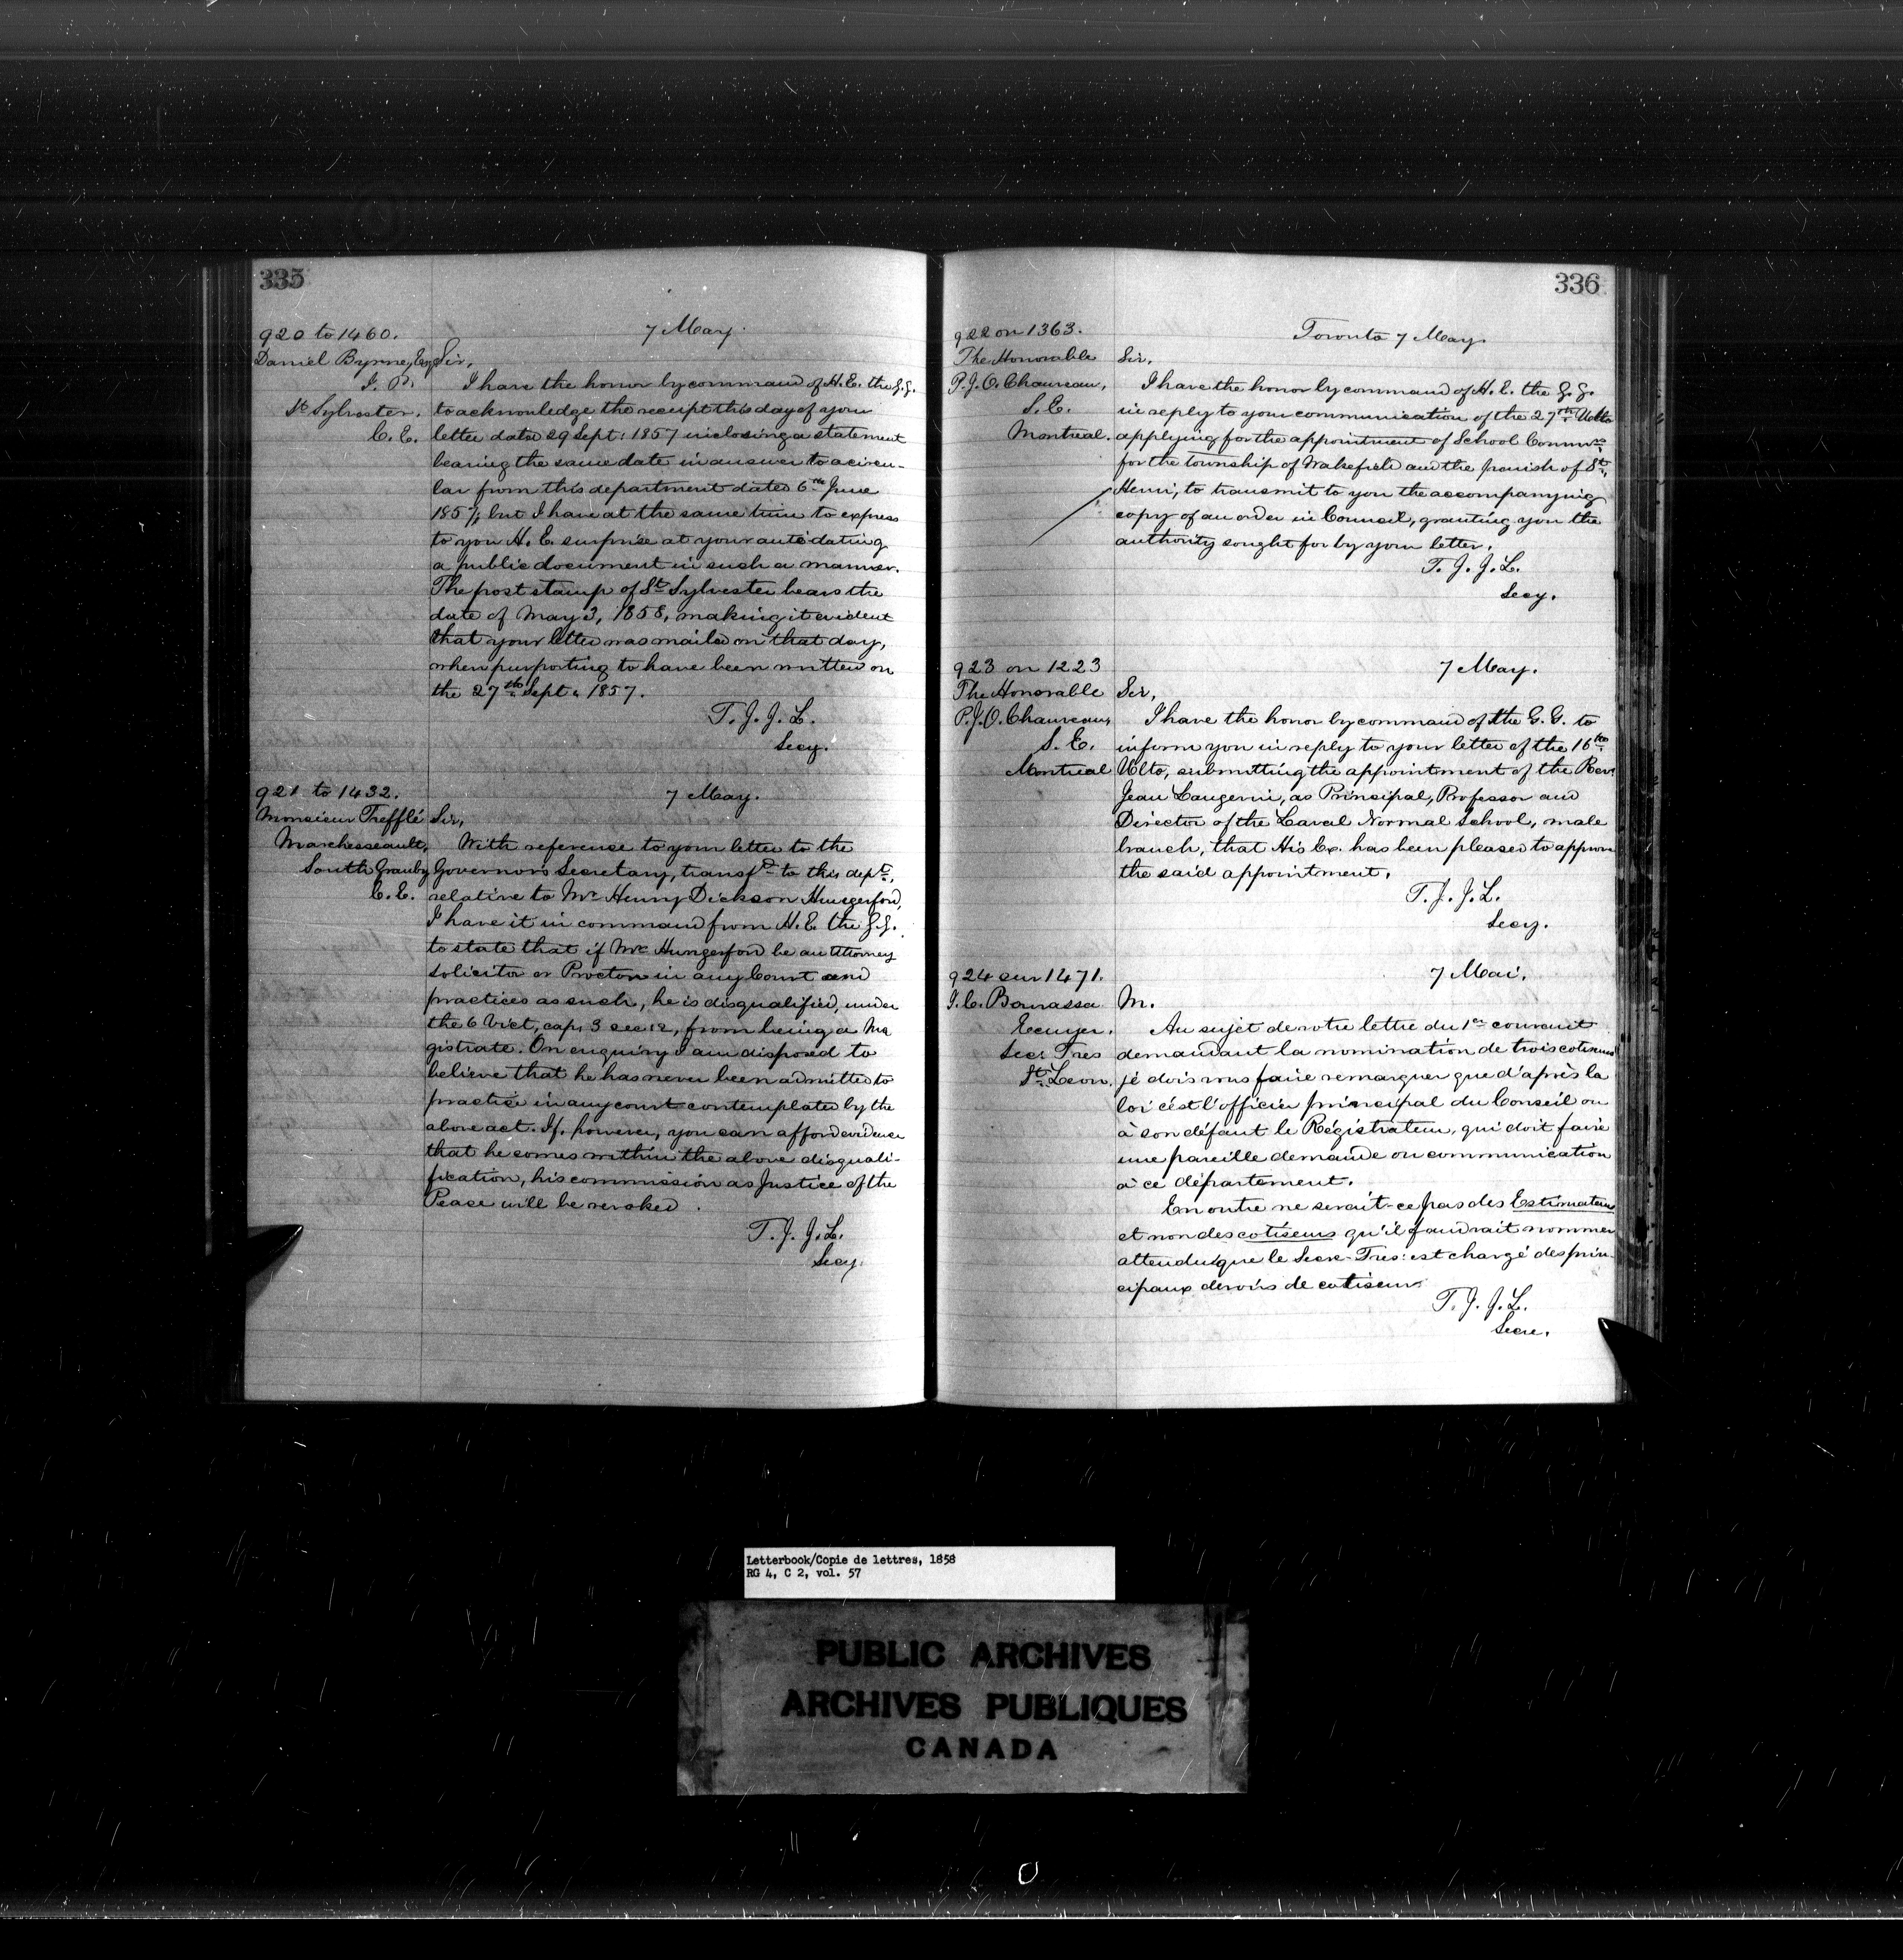 335
920 to 1460.
7 May.
Daniel Byrne, Esq
J. P.
St Sylvester.
C. E.
Sir,
I have the honor by command of H. E. the G. G.
to acknowledge the receipt this day of your
letter dated 29 Sept: 1857 inclosing a statement
bearing the same date in answer to a circu-
lar from this department dated 6th June
1857, but I have at the same time to express
to you H. E. surprise at your antedating
a public document in such a manner.
The post stamp of St Sylvester bears the
date of May 3, 1858, making it evident
that your letter was mailed on that day,
when purporting to have been written on
the 27th Sept. 1857.
T. J. J. L.
Secy.
921 to 1432.
7 May.
Monsieur Trefflé
Marchesseault,
South Granby
C. E.
Sir,
With reference to your letter to the
Governor's Secretary, transfd to this dept,
relative to Mr Henry Dickson Hungerford,
I have it in command from H. E. the G. G.
to state that if Mr Hungerford be an Attorney
Solicitor or Proctor in any Court and
practices as such, he is disqualified, under
the 6 Vict, cap. 3 sec 12, from being a Ma
gistrate. On enquiry I am disposed to
believe that he has never been admitted to
practice in any court contemplated by the
above act. If, however, you can afford evidence
that he comes within the above disquali-
fication, his commission as Justice of the
Peace will be revoked.
T. J. J. L.
Secy.
336
922 on 1363.
Toronto 7 May.
The Honorable
P. J. O. Chauveau,
S. E.
Montreal.
Sir.
I have the honor by command of H. E. the G. G.
in reply to your communication of the 27th Ulto
applying for the appointment of School Commrs
for the township of Wakefield and the parish of St
Henri, to transmit to you the accompanying
copy of an order in Council, granting you the
authority sought for by your letter.
T. J. J. L.
Secy.
923 on 1223
7 May.
The Honorable
P. J. O. Chauveau,
S. E.
Montreal
Sir,
I have the honor by command of the G. G. to
inform you in reply to your letter of the 16th
Ulto, submitting the appointment of the Rev.
Jean Langevin, as Principal, Professor and
Director of the Laval Normal School, male
branch, that His Ex. has been pleased to approve
the said appointment.
T. J. J. L.
Secy.
924 sur 1471.
7 Mai.
Ecuyer.
Sec: Tres
St. Leon.
M.
Au sujet de votre lettre du 1er courant
demandant la nomination de trois cotiseurs
je dois vous faire remarquer que d'après la
loi c'est l'officier principal du Conseil ou
à son défaut le Régistrateur, qui doit faire
une pareille demande ou communication
à ce département.
En outre ne serait-ce pas des Estimateurs
et non des cotiseurs qu'il faudrait nommer
attendu que le Secre-Tres: est chargé des prin-
cipaux devoirs de cotiseur.
T. J. J. L.
Secre.
Letterbook/Copie de lettres, 1858
RG 4, C 2, vol. 57
PUBLIC ARCHIVES
ARCHIVES PUBLIQUES
CANADA